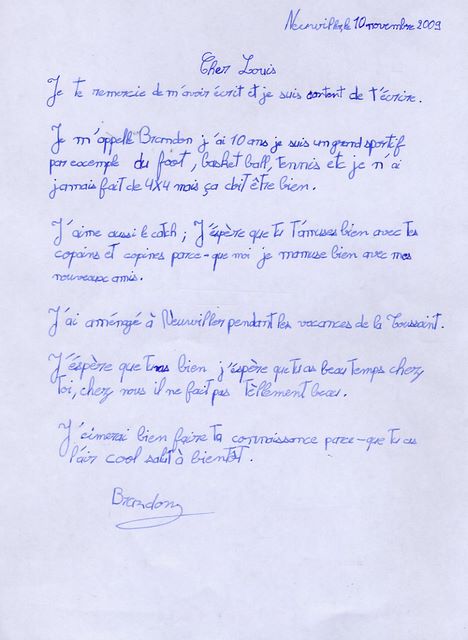 Neuwiller, le 10 novembre 2009
Cher Louis
Je te remercie de m'avoir écrit et je suis content de t'écrire.
Je m'appelle Brandon j'ai 10 ans je suis un grand sportif
par excemple du foot, basket ball, tennis etc je n'ai
jamais fait de 4x4 mais ça doit être bien.
J'aime aussi le catch ; J'éspère que tu t'amuses bien avec tes
copains et copines parce-que moi je m'amuse bien avec mes
nouveaux amis.
J'ai aménagé à Neuwiller pendant les vacances de la Toussaint.
J'éspère que tu vas bien j'éspère que tu as beau temps chez
toi, chez nous il ne fait pas tèllement beau.
J'eimerai bien faire ta connaissance parce-que tu as
l'air cool salut à bientôt.
Brandon